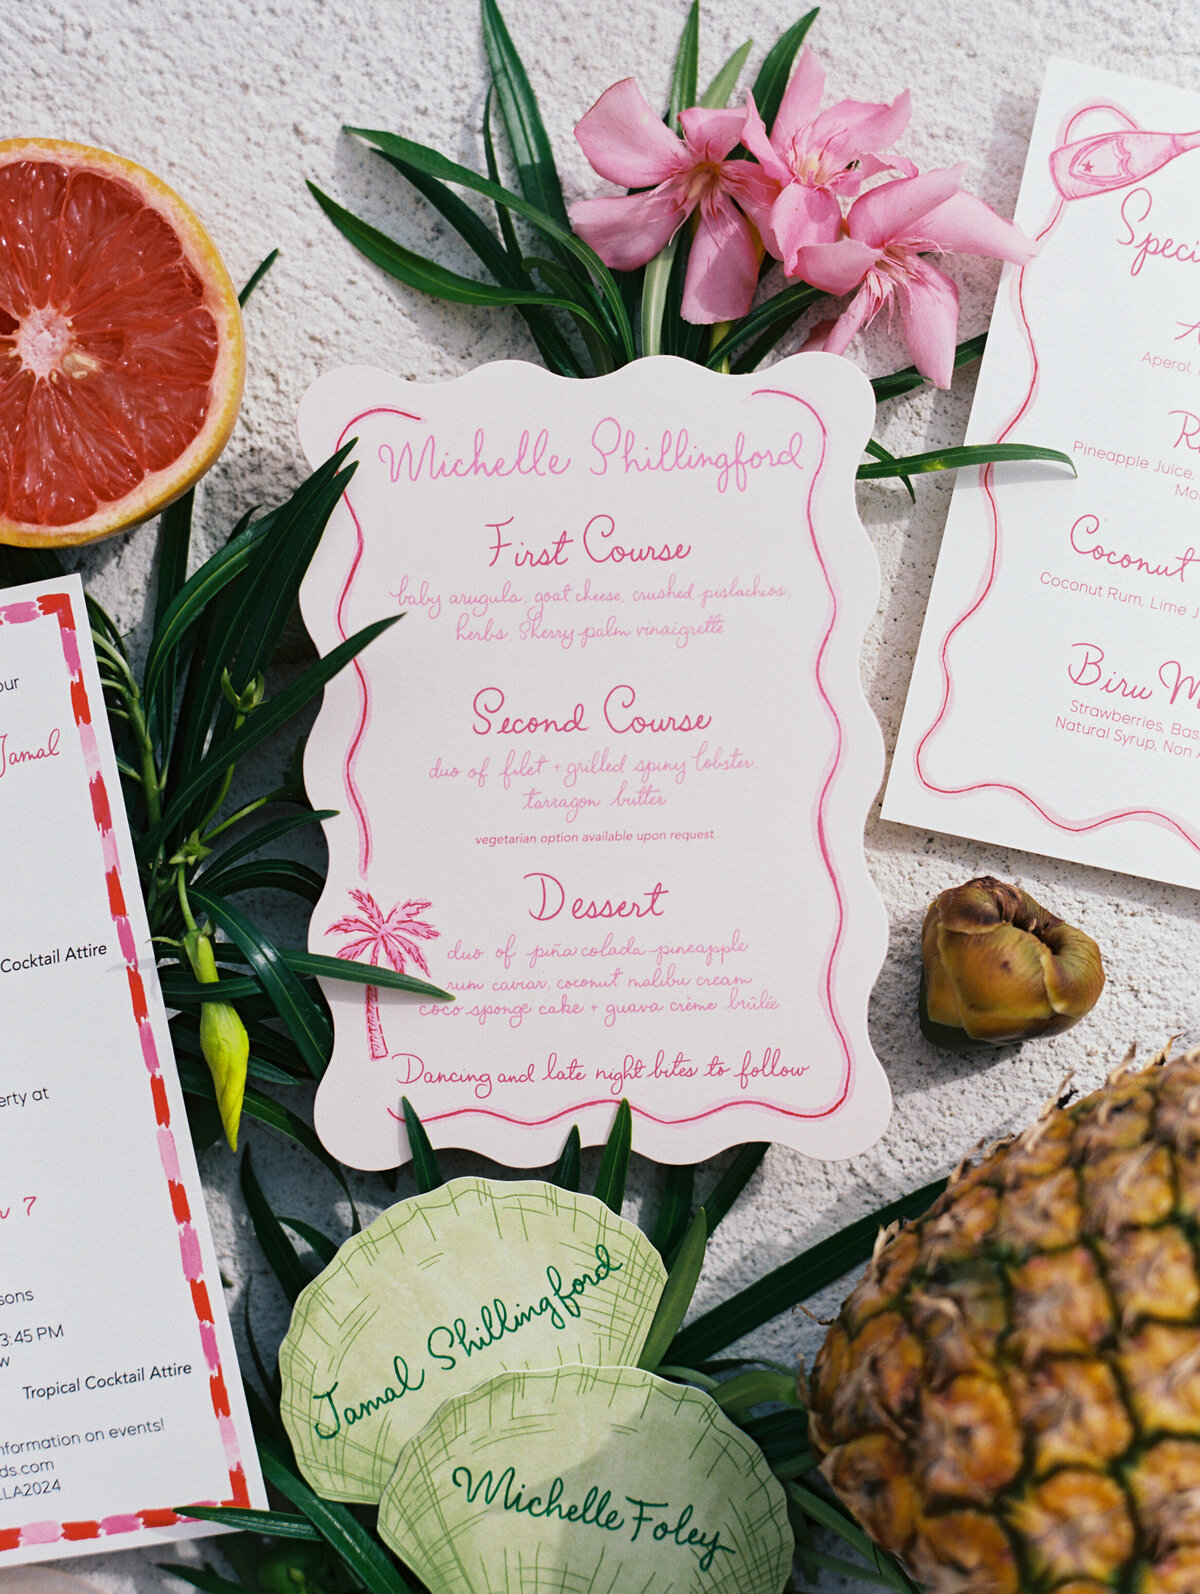 Michelle Shillingford
First Course
baby arugula, goat cheese, crushed pistachios,
herbs, sherry palm vinaigrette
Second Course
duo of filet + grilled spiny lobster,
tarragon butter
vegetarian option available upon request
Dessert
duo of piña colada-pineapple
rum caviar, coconut malibu cream
coco sponge cake + guava crème brûlée
Dancing and late night bites to follow
Jamal Shillingford
Michelle Foley
Jamal
Cocktail Attire
erty at
7
3:45 PM
Tropical Cocktail Attire
nformation on events!
ds.com
LLA2024
Speci
Aperol,
Pineapple Juice,
Coconut
Coconut Rum, Lime
Biru M
Strawberries, Bas
Natural Syrup, Non